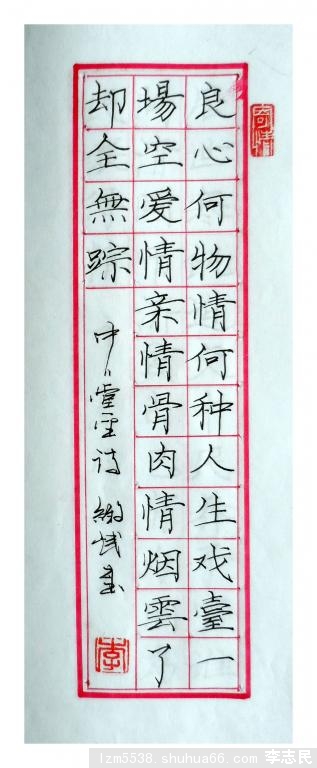 寄情
良心何物情何种人生戏臺一
場空爱情亲情骨肉情烟雲了
却全無踪
诗
李
lzm5538.shuhua66.com 李志民